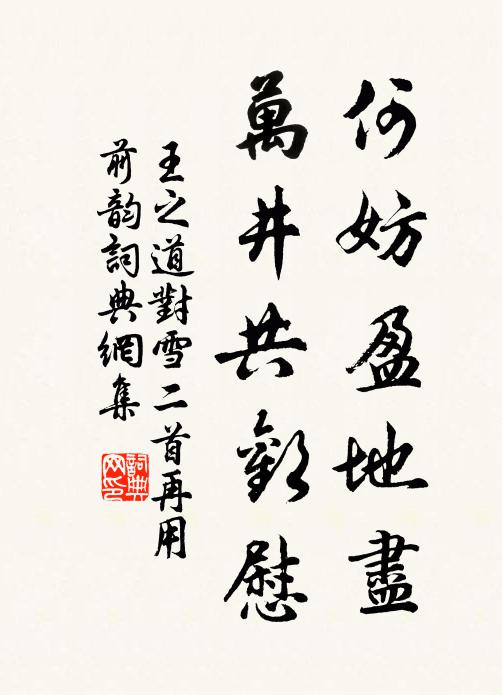 何妨盈地盡
萬井共歡慰
王之道對雪二首再用
前韵詞典網集
詞典网印